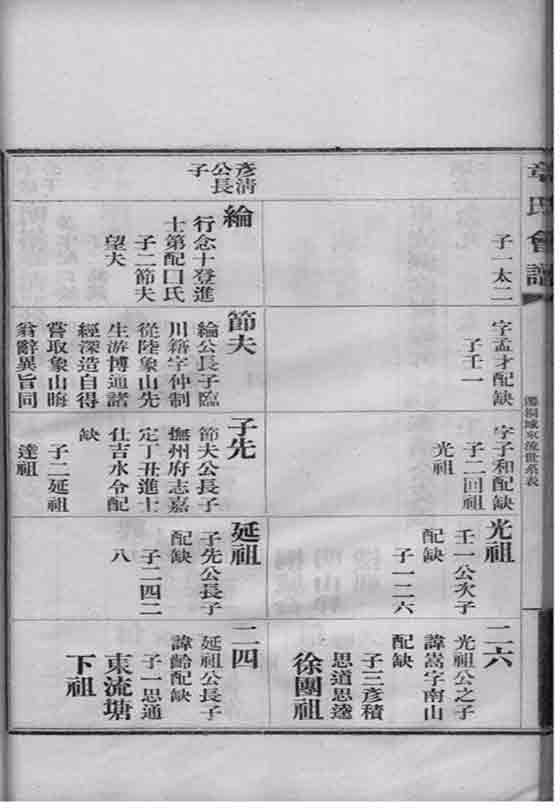 章氏會譜
遷桐城東流世系表
子一太二
字孟才配缺
子壬一
字子和配缺
子二回祖
光祖
光祖
壬一公次子
配缺
子一二六
二六
光祖公之子
諱嵩字南山
配缺
子三彥積
思道思逵
徐團祖
彥清
公長
子
綸
行念十登進
士第配囗氏
子二節夫
望夫
節夫
綸公長子臨
川籍字仲制
從陸象山先
生游博通諸
經深造自得
嘗取象山晦
翁辭異旨同
子先
節夫公長子
撫州府志嘉
定丁丑進士
仕吉水令配
缺
子二延祖
達祖
延祖
子先公長子
配缺
子二四二
八
二四
延祖公長子
諱齡配缺
子一思通
東流塘
下祖